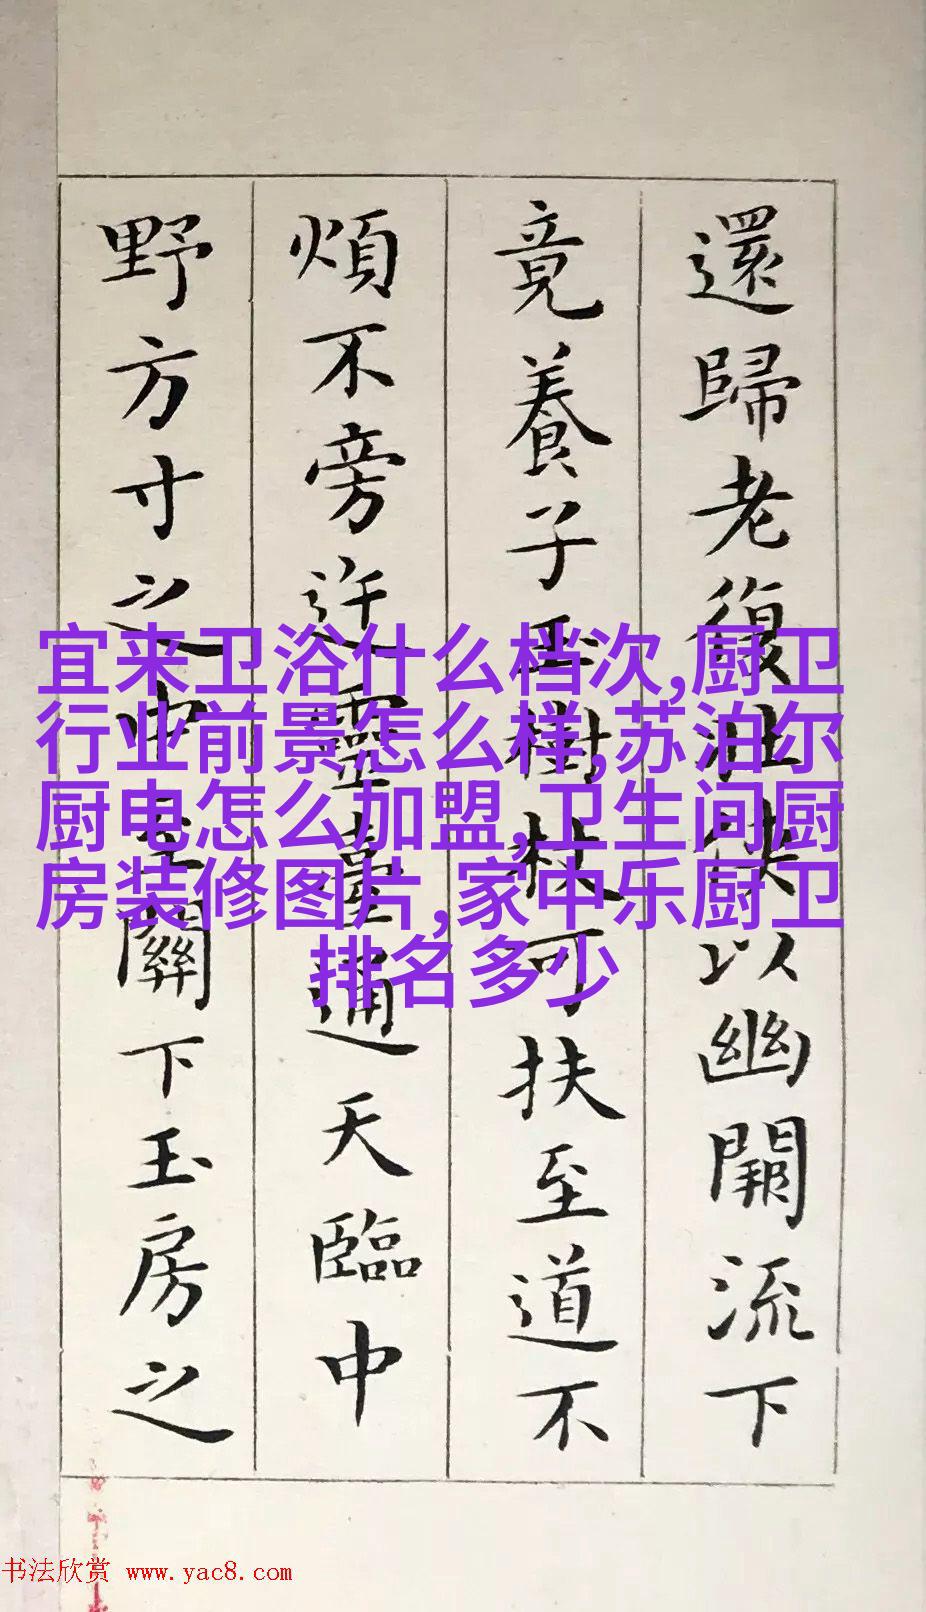 還歸老復壯侠以幽闕流下
竟養子玉樹杖可扶至道不
煩不旁迕靈臺通天臨中
野方寸之中至關下玉房之
宜来卫浴什么档次,厨卫
行业前景怎么样,苏泊尔
厨电怎么加盟,卫生间厨
房装修图片,家中乐厨卫
排名多少
书法欣赏 www.yac8.com